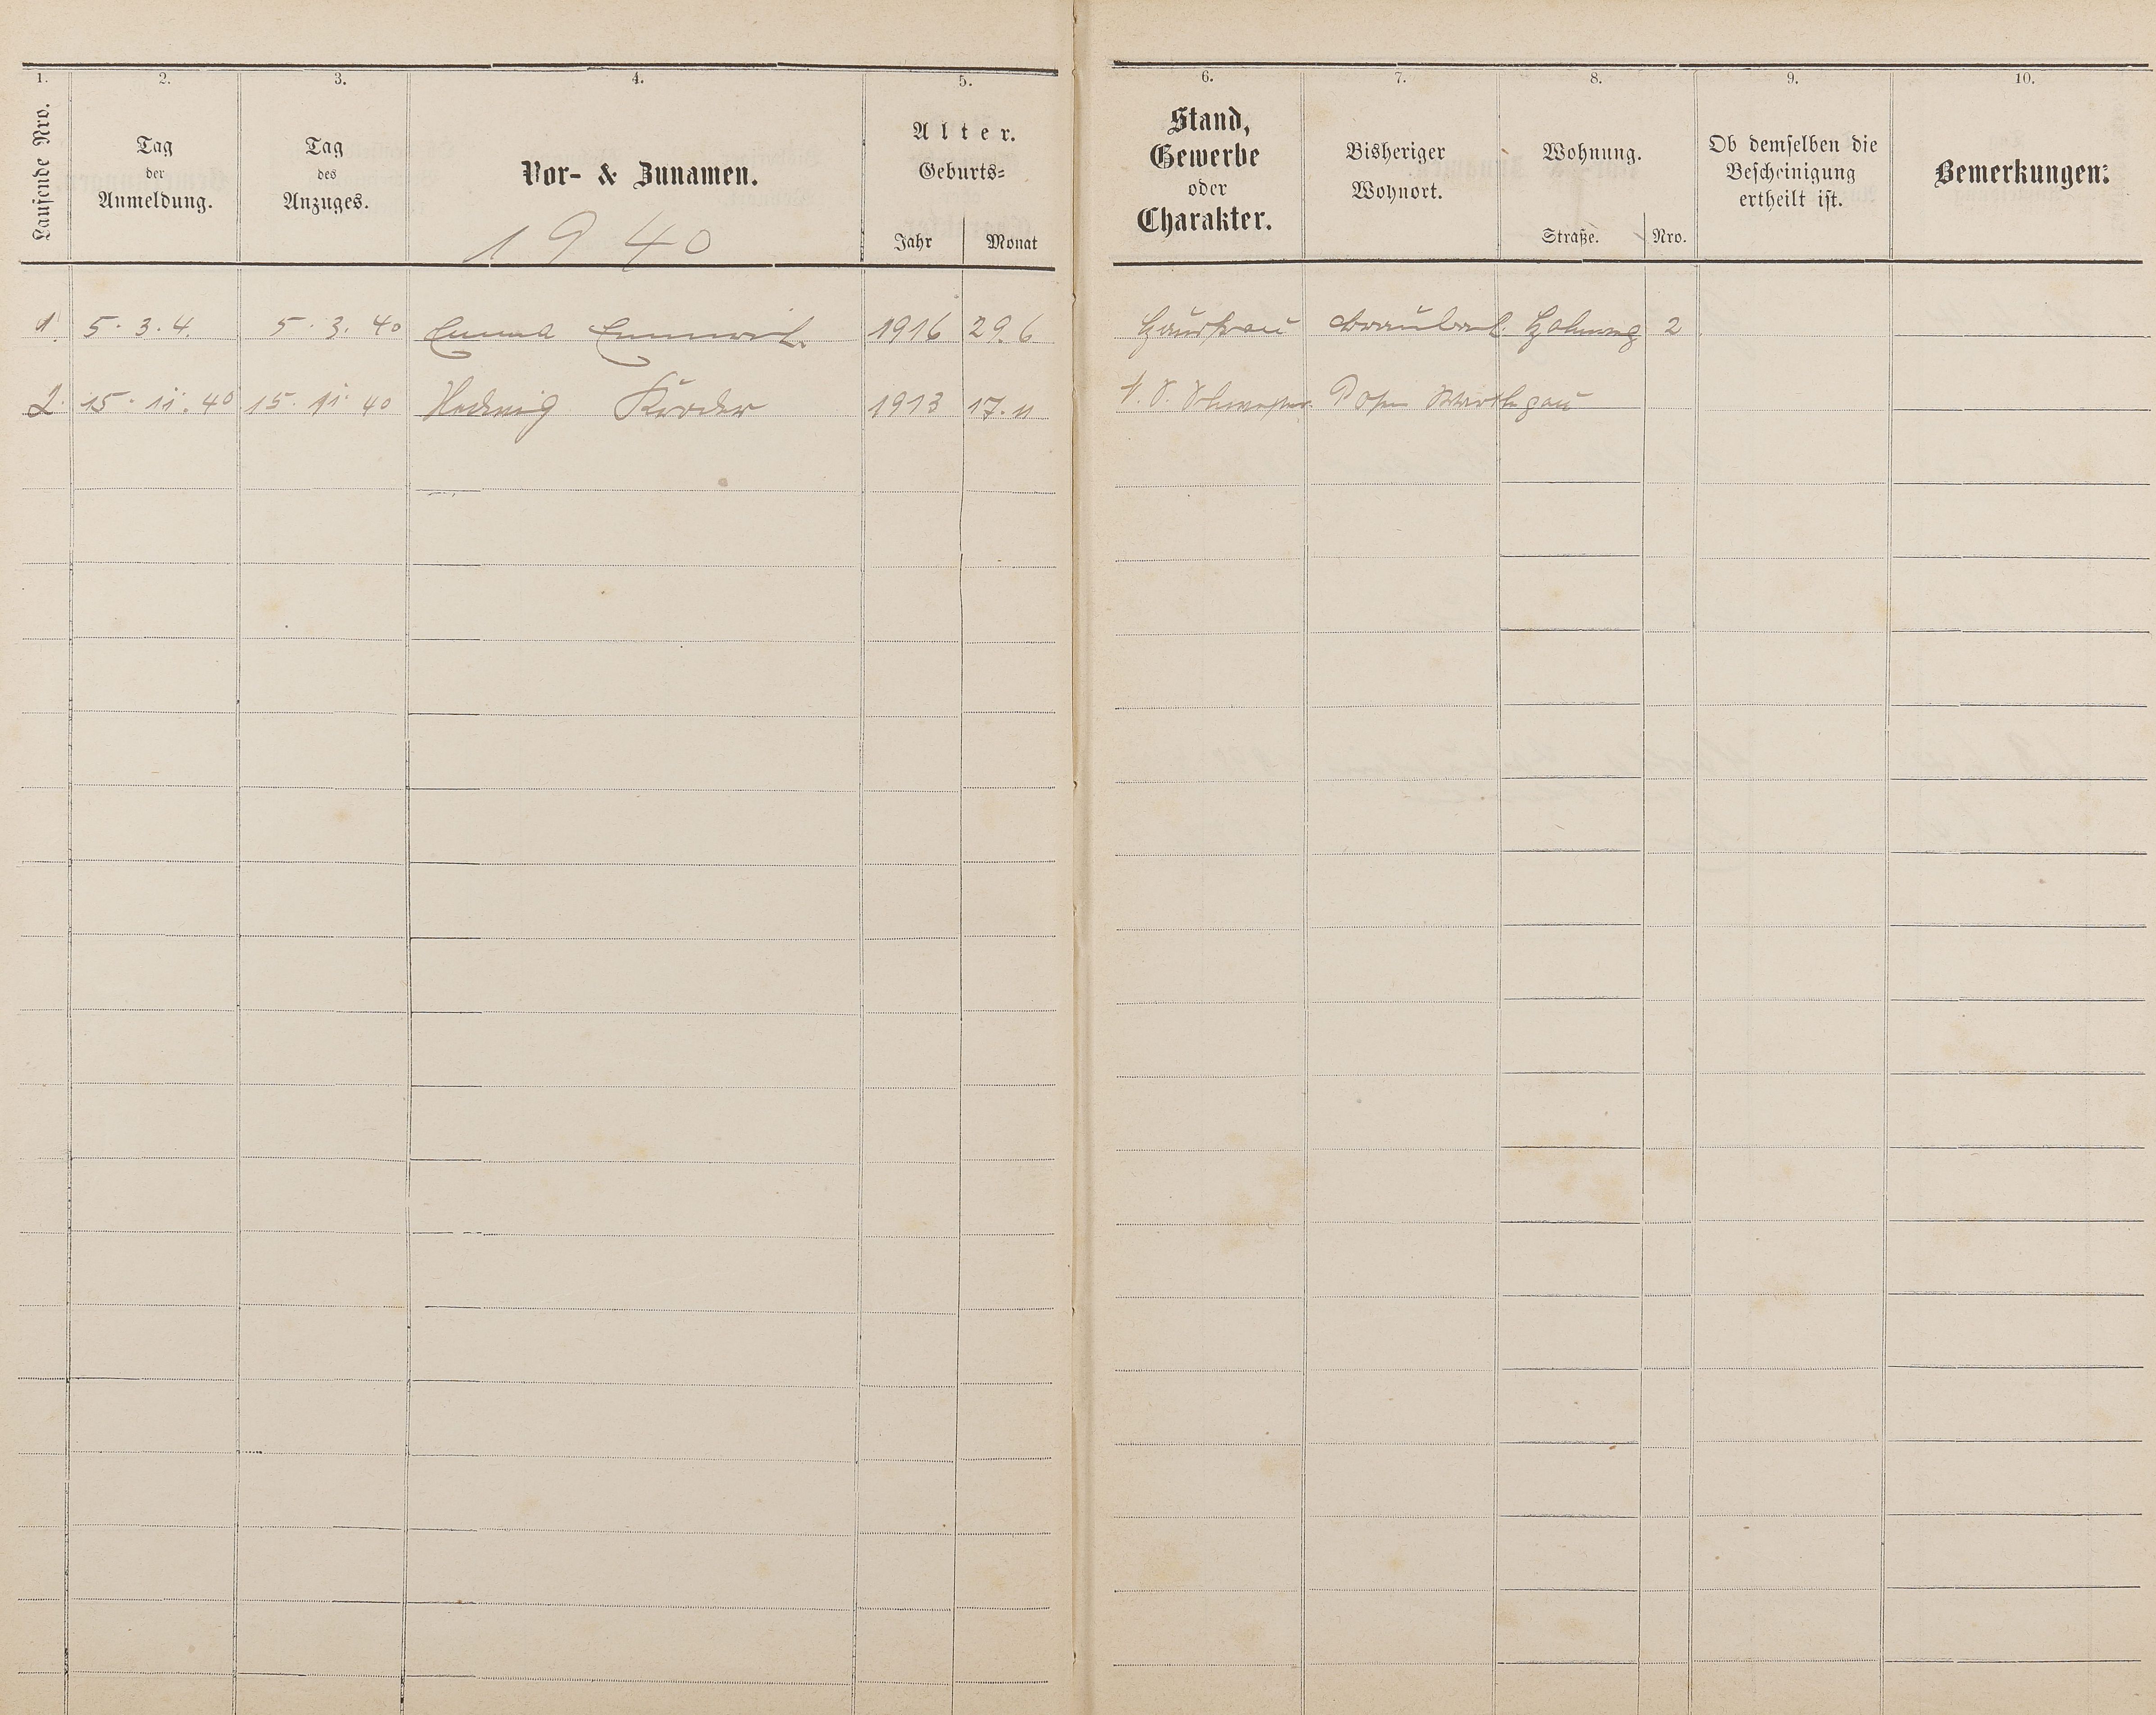 1. 2. 3. 4. 5. 6. 7. 8. 9. 10.
Laufende Nro.
Tag der Anmeldung.
Tag des Anzuges.
Vor- & Zunamen.
Alter.
Geburts-
Jahr Monat
Stand, Gewerbe oder Charakter.
Bisheriger Wohnort.
Wohnung.
Straße. Nro.
Ob demselben die Bescheinigung ertheilt ist.
Bemerkungen.
1940
1. 5. 3. 4. 5. 3. 40 Emma 1916 29. 6 Hausfrau 2
2. 15. 11. 40 15. 11. 40 Hedwig 1913 17. 11 Posen Warthegau